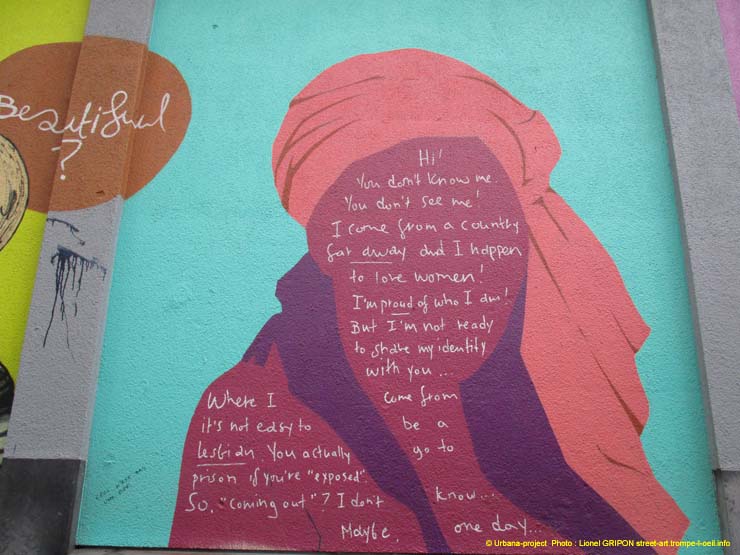 Beautiful
?
Hi!
You don't know me.
You don't see me!
I come from a country
far away and I happen
to love women!
I'm proud of who I am!
But I'm not ready
to share my identity
with you...
Where I come from
it's not easy to be a
lesbian. You actually go to
prison if you're "exposed".
So, "coming out"? I don't know...
Maybe, one day...
© Urbana-project Photo : Lionel GRIPON street-art.trompe-l-oeil.info